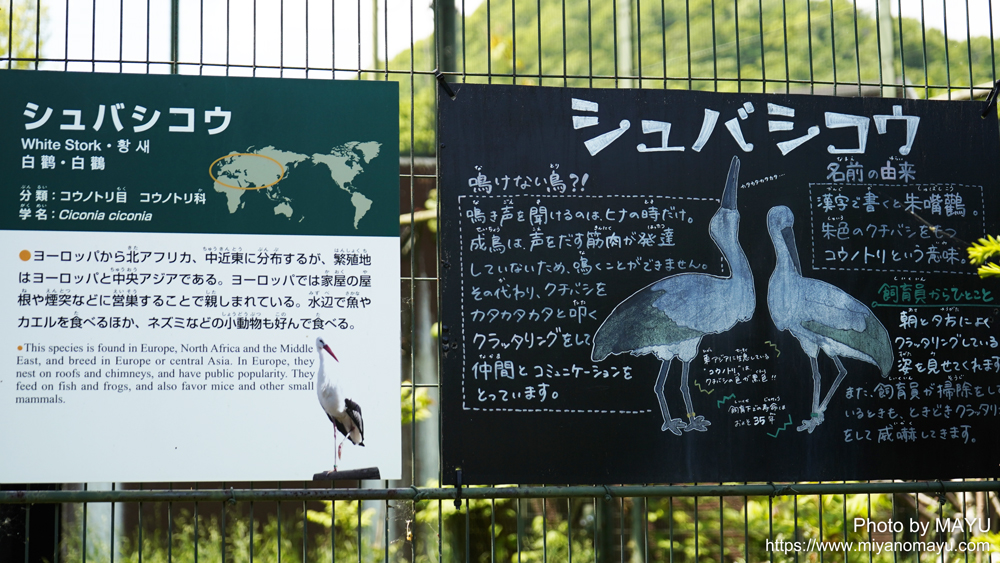 シュバシコウ
White Stork・황새
白鸛・白鸛
分類：コウノトリ目 コウノトリ科
学名：Ciconia ciconia
●ヨーロッパから北アフリカ、中近東に分布するが、繁殖地
はヨーロッパと中央アジアである。ヨーロッパでは家屋の屋
根や煙突などに営巣することで親しまれている。水辺で魚や
カエルを食べるほか、ネズミなどの小動物も好んで食べる。
●This species is found in Europe, North Africa and the Middle
East, and breed in Europe or central Asia. In Europe, they
nest on roofs and chimneys, and have public popularity. They
feed on fish and frogs, and also favor mice and other small
mammals.
シュバシコウ
鳴けない鳥?!
鳴き声を聞けるのは、ヒナの時だけ。
成鳥は、声をだす筋肉が発達
していないため、鳴くことができません。
その代わり、クチバシを
カタカタカタと叩く
クラッタリングをして
仲間とコミュニケーションを
とっています。
カタカタカタッ…
名前の由来
漢字で書くと朱嘴鸛。
朱色のクチバシをもつ
コウノトリという意味。
飼育員からひとこと
朝と夕方によく
クラッタリングしている
姿を見せてくれます
また、飼育員が掃除をして
いるときも、ときどきクラッタリング
をして威嚇してきます。
東アジアに生息している
コウノトリは、
クチバシの色が黒色!!
飼育下での寿命は
およそ35年
Photo by MAYU
https://www.miyanomayu.com/